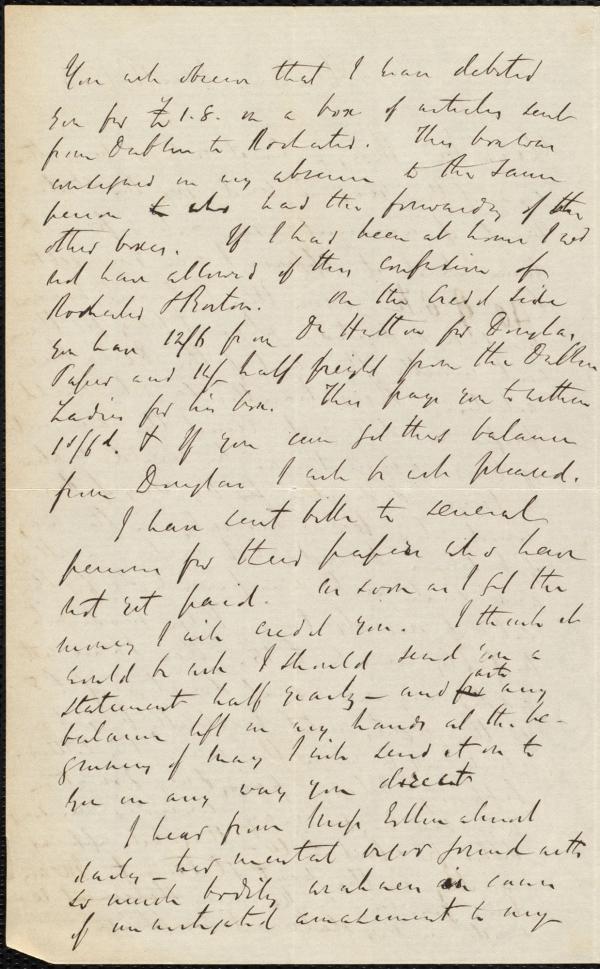 You will observe that I have debited
you for £1.8. on a box of articles sent
from Dublin to Rochester. This box was
consigned in my absence to the same
person who had the forwarding of the
other boxes. If I had been at home I wd
not have allowed of this confusion of
Rochester & Boston. On the credit side
you have 12/6 from Dr Hutton for Douglas,
Paper and half freight from the Dublin
Ladies for his box. This pays you to within
& If you can get this balance
from Douglas I will be well pleased.
I have sent bills to several
persons for their papers who have
not yet paid. As soon as I get the
money I will credit you. I think it
would be well I should send you a
statement half yearly - and any
balance left in my hands at the be-
ginning of May I will send it on to
you in any way you direct
I hear from Miss Estlin almost
daily - her mental vigor joined with
so much bodily weakness is cause
of unmitigated amazement to my